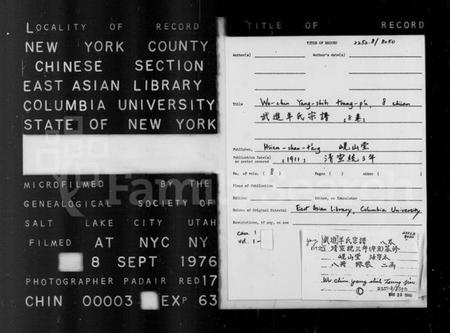 LOCALITY OF RECORD
NEW YORK COUNTY
CHINESE SECTION
EAST ASIAN LIBRARY
COLUMBIA UNIVERSITY
STATE OF NEW YORK
MICROFILMED BY THE
GENEALOGICAL SOCIETY OF
SALT LAKE CITY UTAH
FILMED AT NYC NY
8 SEPT 1976
PHOTOGRAPHER PADAIR RED 17
CHIN 00003 EXP 63
TITLE OF RECORD
TITLE OF RECORD 2252.8/8050
Author(s)
Title Wu-chin Yang-shih tsung-p'u, 8 chüan
武進羊氏宗譜 ,8卷
Publisher, Hsien-shan-t'ang 峴山堂
Publication date(s) or period covered (1911) 清宣統3年
No. of vols. ( 8 ) Pages ( ) other ( )
Place of Publication
Edition: or Translation:
Source of Original Material East Asian Library, Columbia University
Restrictions, if any, on use
Case 1
Vol. 1-
武進羊氏宗譜 八卷
清宣統三年
峴山堂 活字本
八冊 二函
Wu chin yang shih tsung p'u